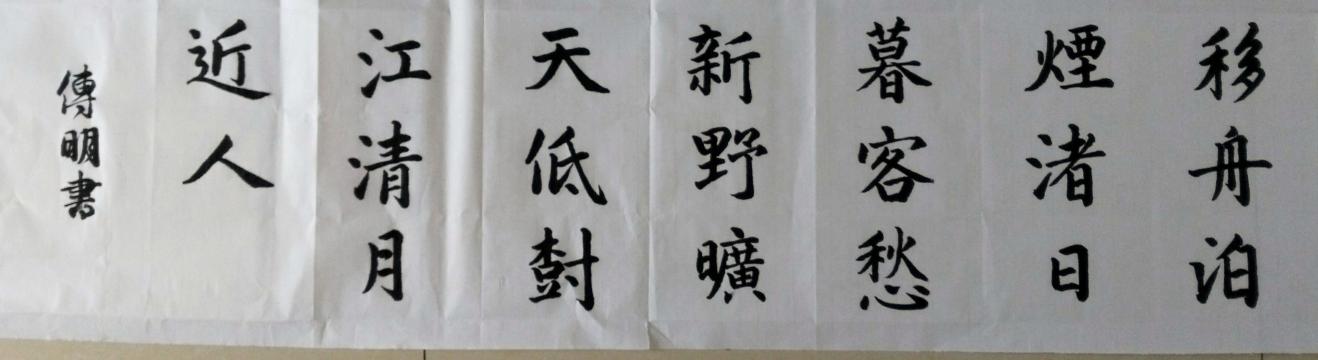 移舟泊
煙渚日
暮客愁
新野曠
天低樹
江清月
近人
傅明書